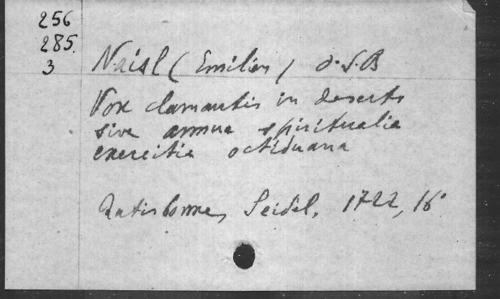 256
285
3
Naisl (Emilien) O.S.B
Vox clamantis in deserto
sive annua spiritualia
exercitia octiduana
Ratisbonne, Seidel, 1722, 16°